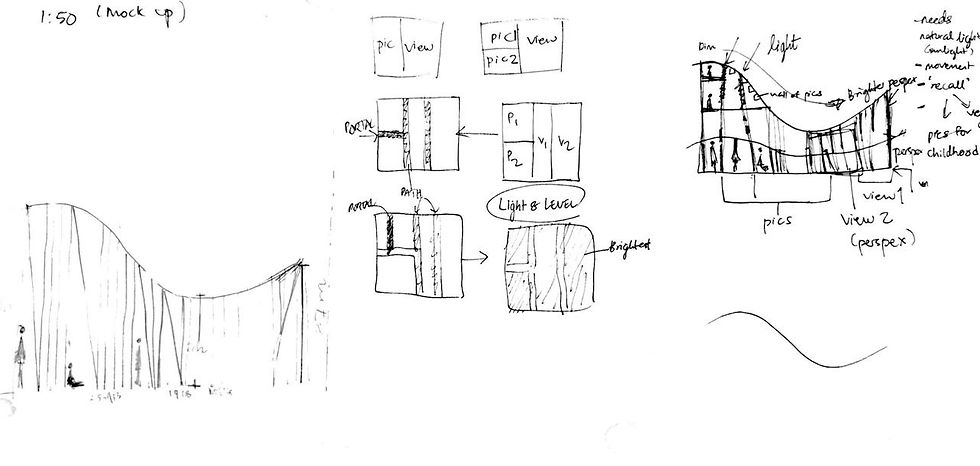 1:50 (Mock up)
pic
view
pic1
pic2
view
PORTAL
P1
P2
V1
V2
PATH
PORTAL
Light & LEVEL
Brightest
Dim
light
wall of pics
Brighter perspex
- needs
natural light
(sunlight)
- movement
- "recall"
pics for
childhood
perspex
view 1
pics
view 2
(perspex)